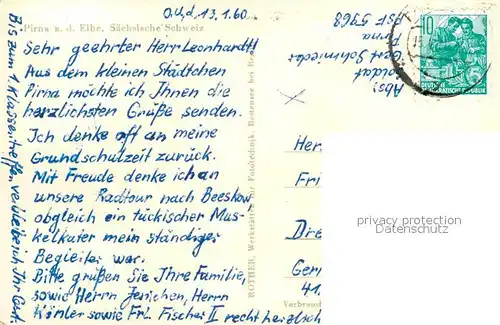 O.U., d. 13.1.60
Pirna a. d. Elbe, Sächsische Schweiz
Sehr geehrter Herr Leonhardt!
Aus dem kleinen Städtchen
Pirna möchte ich Ihnen die
herzlichsten Grüße senden.
Ich denke oft an meine
Grundschulzeit zurück.
Mit Freude denke ich an
unsere Radtour nach Beeskow
obgleich ein tückischer Mus-
kelkater mein ständiger
Begleiter war.
Bitte grüßen Sie Ihre Familie,
sowie Herrn Jenichen, Herrn
sowie Frl. Fischer II recht herzlich
Bis zum 1. Klassentreffen verbleibe ich Ihr Gert.
Abs.
Soldat
Gert Schmieder
Pirna
PSF 5968
10
DEUTSCHE
DEMOKRATISCHE REPUBLIK
ROTHER, Werkstätten für Fototechnik,
Her
Fri
Dre
Gern
41.
Verbrauch
privacy protection
Datenschutz